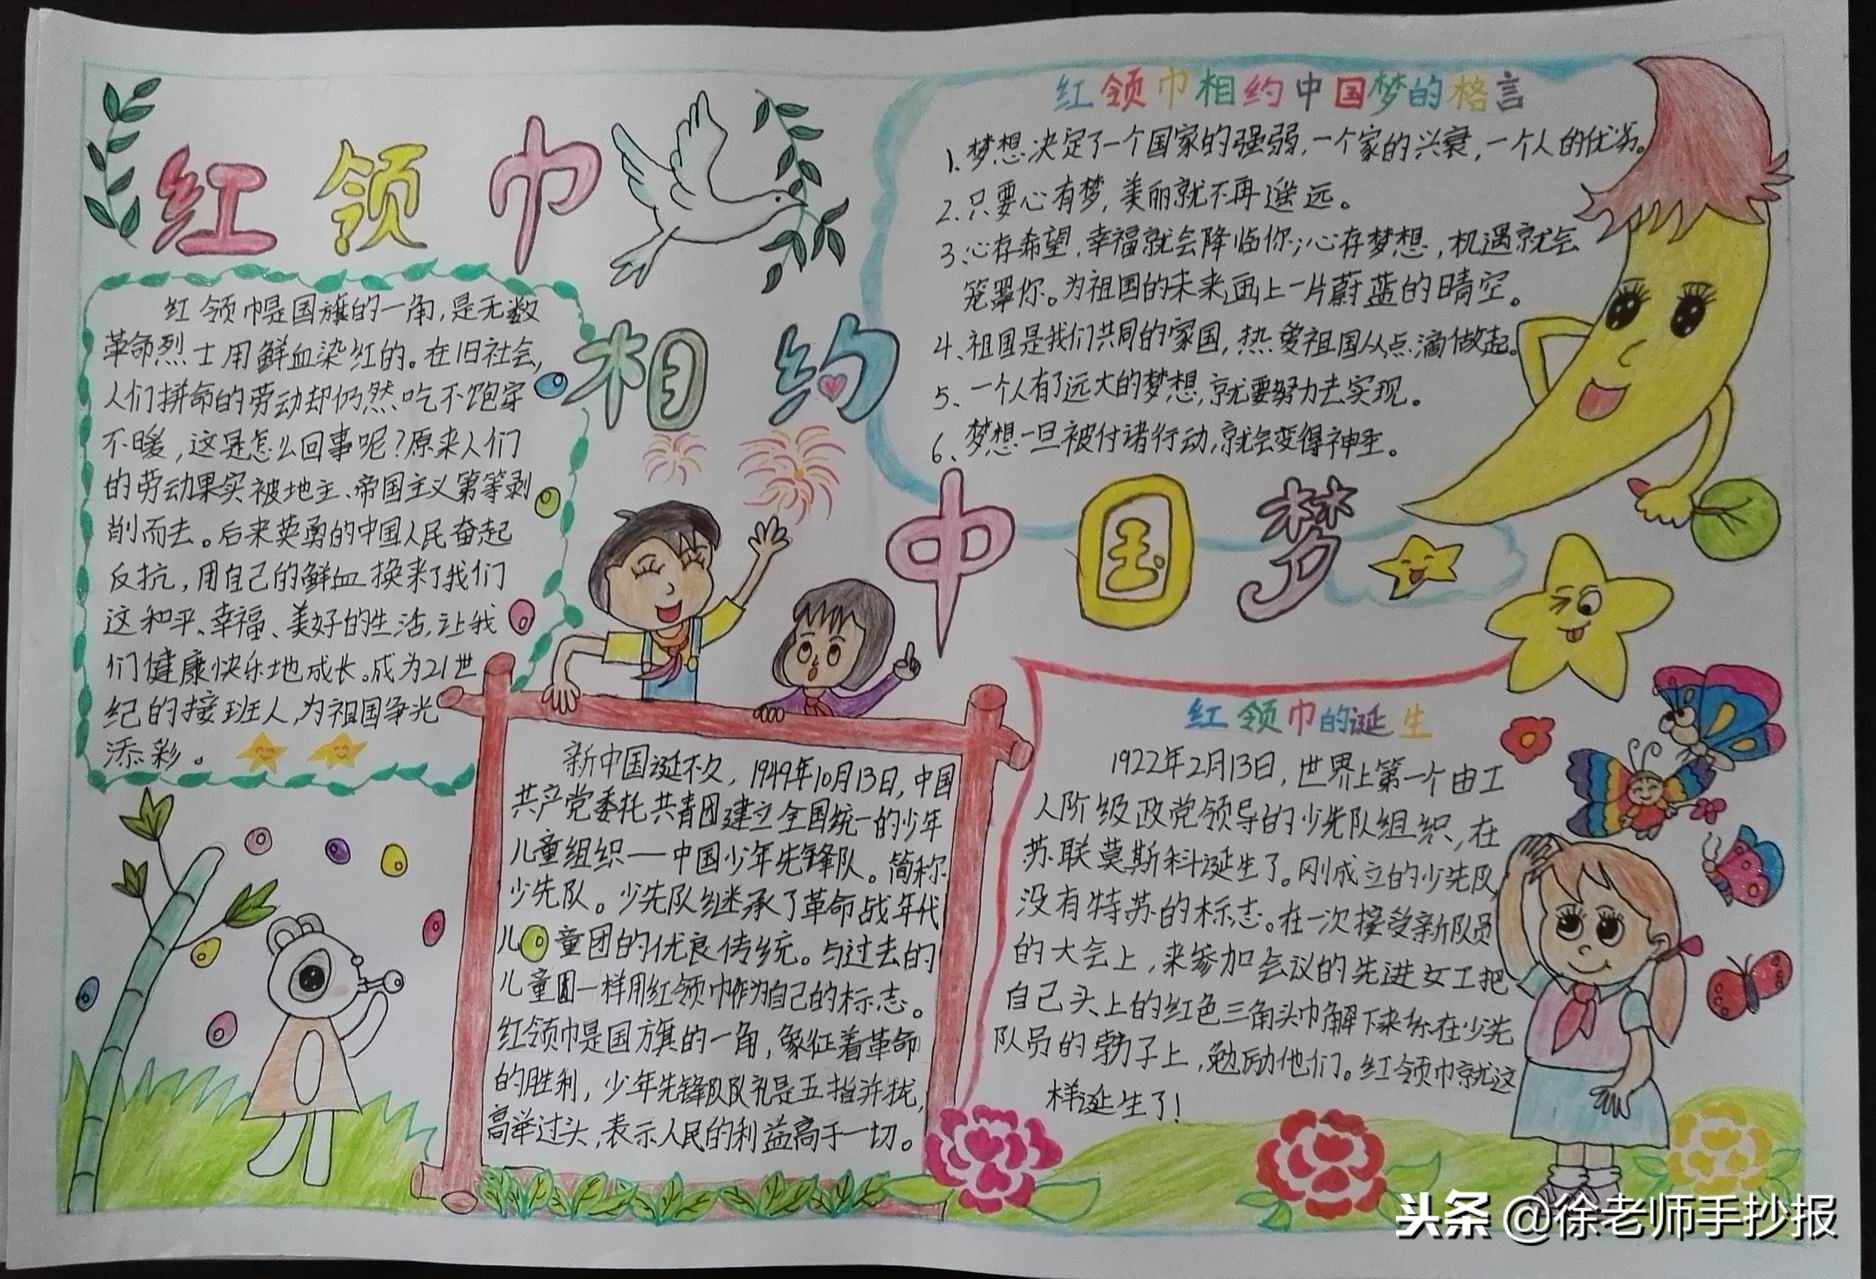 红领巾
相约
中国梦
红领巾是国旗的一角,是无数
革命烈士用鲜血染红的。在旧社会,
人们拼命的劳动却仍然吃不饱穿
不暖,这是怎么回事呢?原来人们
的劳动果实被地主、帝国主义第等剥
削而去。后来英勇的中国人民奋起
反抗,用自己的鲜血换来了我们
这和平、幸福、美好的生活,让我
们健康快乐地成长。成为21世
纪的接班人,为祖国争光
添彩。
红领巾相约中国梦的格言
1.梦想决定了一个国家的强弱,一个家的兴衰,一个人的优劣。
2.只要心有梦,美丽就不再遥远。
3.心存希望,幸福就会降临你;心存梦想,机遇就会
笼罩你。为祖国的未来画上一片蔚蓝的晴空。
4、祖国是我们共同的家国,热爱祖国从点滴做起。
5、一个人有了远大的梦想,就要努力去实现。
6、梦想一旦被付诸行动,就会变得神圣。
新中国诞不久,1949年10月13日,中国
共产党委托共青团建立全国统一的少年
儿童组织——中国少年先锋队。简称
少先队。少先队继承了革命战年代
儿童团的优良传统。与过去的
儿童团一样用红领巾作为自己的标志。
红领巾是国旗的一角,象征着革命
的胜利,少年先锋队队礼是五指并拢,
高举过头,表示人民的利益高于一切。
红领巾的诞生
1922年2月13日,世界上第一个由工
人阶级政党领导的少先队组织,在
苏联莫斯科诞生了。刚成立的少先队
没有特苏的标志。在一次接受新队员
的大会上,来参加会议的先进女工把
自己头上的红色三角头巾解下来系在少先
队员的脖子上,勉励他们。红领巾就这
样诞生了!
头条@徐老师手抄报